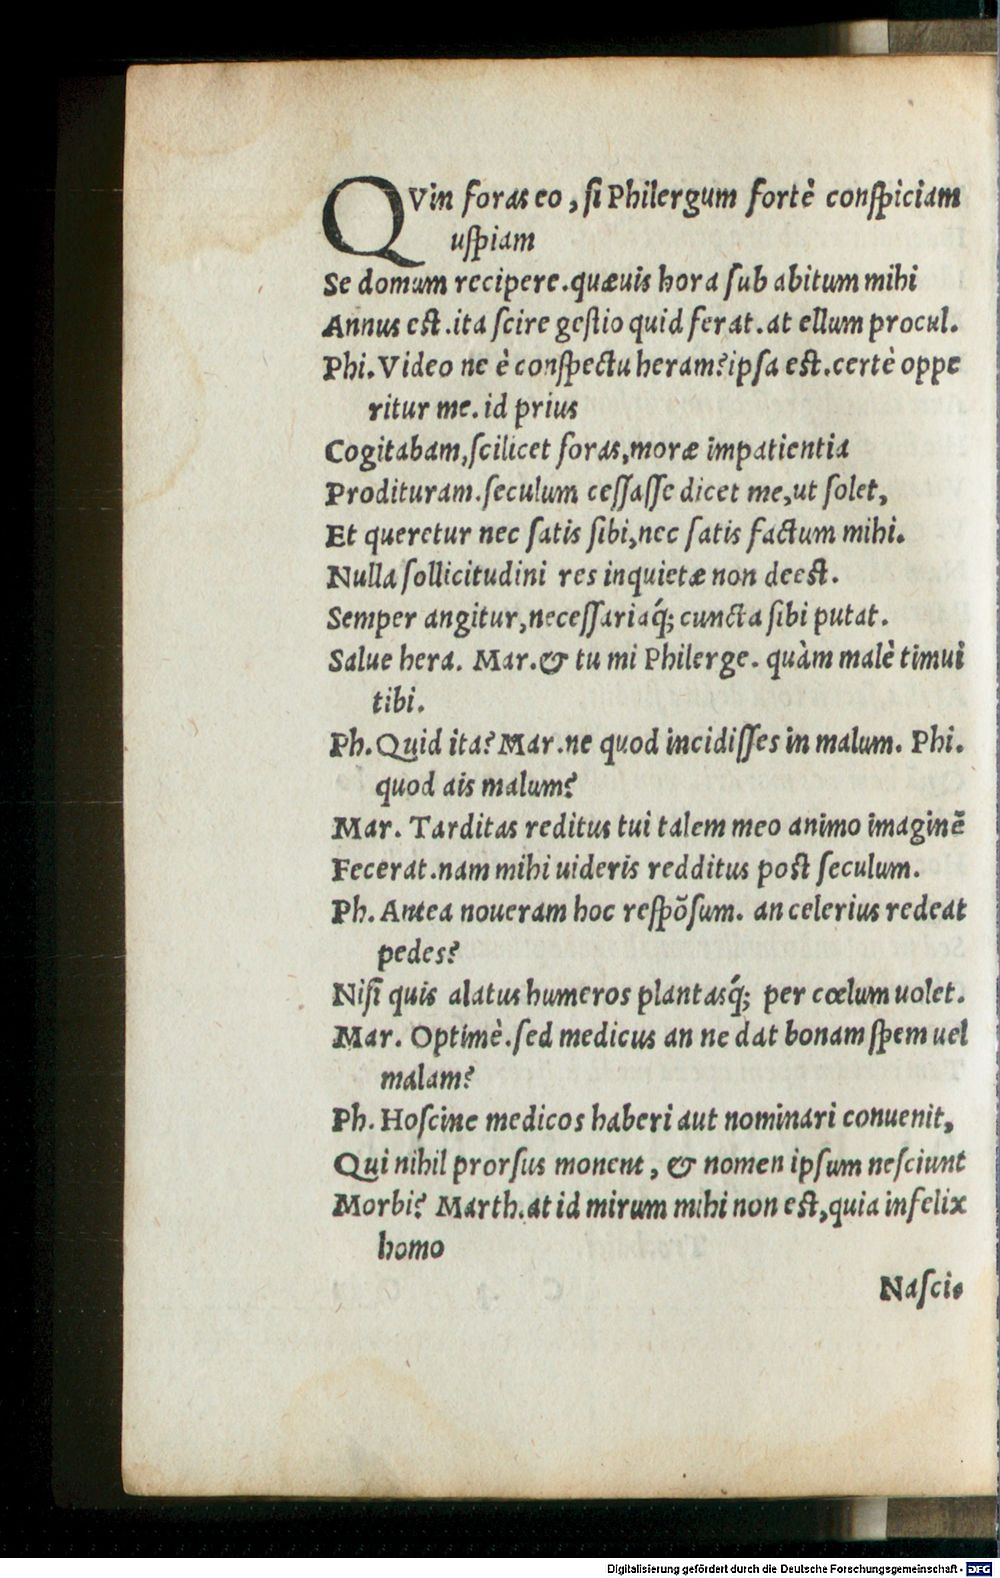 QVin foras eo, si Philergum fortè conspiciam
uspiam
Se domum recipere. quæuis hora sub abitum mihi
Annus est. ita scire gestio quid ferat. at ellum procul.
Phi. Video ne è conspectu heram? ipsa est. certè oppe
ritur me. id prius
Cogitabam, scilicet foras, moræ impatientia
Prodituram. seculum cessasse dicet me, ut solet,
Et queretur nec satis sibi, nec satis factum mihi.
Nulla sollicitudini res inquietæ non deest.
Semper angitur, necessariaq́; cuncta sibi putat.
Salue hera. Mar. & tu mi Philerge. quàm malè timui
tibi.
Ph. Quid ita? Mar. ne quod incidisses in malum. Phi.
quod ais malum?
Mar. Tarditas reditus tui talem meo animo imaginẽ
Fecerat. nam mihi uideris redditus post seculum.
Ph. Antea noueram hoc respõsum. an celerius redeat
pedes?
Nisi quis alatus humeros plantasq́; per cœlum uolet.
Mar. Optimè. sed medicus an ne dat bonam spem uel
malam?
Ph. Hoscine medicos haberi aut nominari conuenit,
Qui nihil prorsus monent, & nomen ipsum nesciunt
Morbi? Marth. at id mirum mihi non est, quia infelix
homo
Nasci.
Digitalisierung gefördert durch die Deutsche Forschungsgemeinschaft - DFG